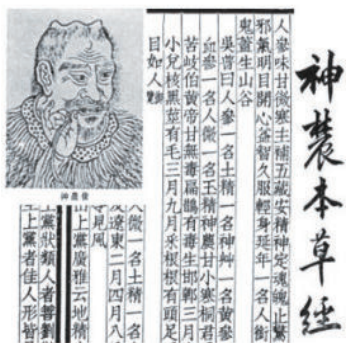 神農本草經
人參味甘微寒主補五藏安精神定魂魄止驚
邪氣明目開心益智久服輕身延年一名人銜
鬼蓋生山谷
吳普曰人參一名土精一名神艸一名黃參
血參一名人微一名玉精神農甘小寒桐君
苦岐伯黃帝甘無毒扁鵲有毒生邯鄲三月
小兒核黑莖有毛三月九月采根根有頭足
目如人御覽
神農像
人微一名土精一名
遼東二月四月八
見風
上黨廣雅云地精
上黨狀類人者善劉
上黨者佳人形皆